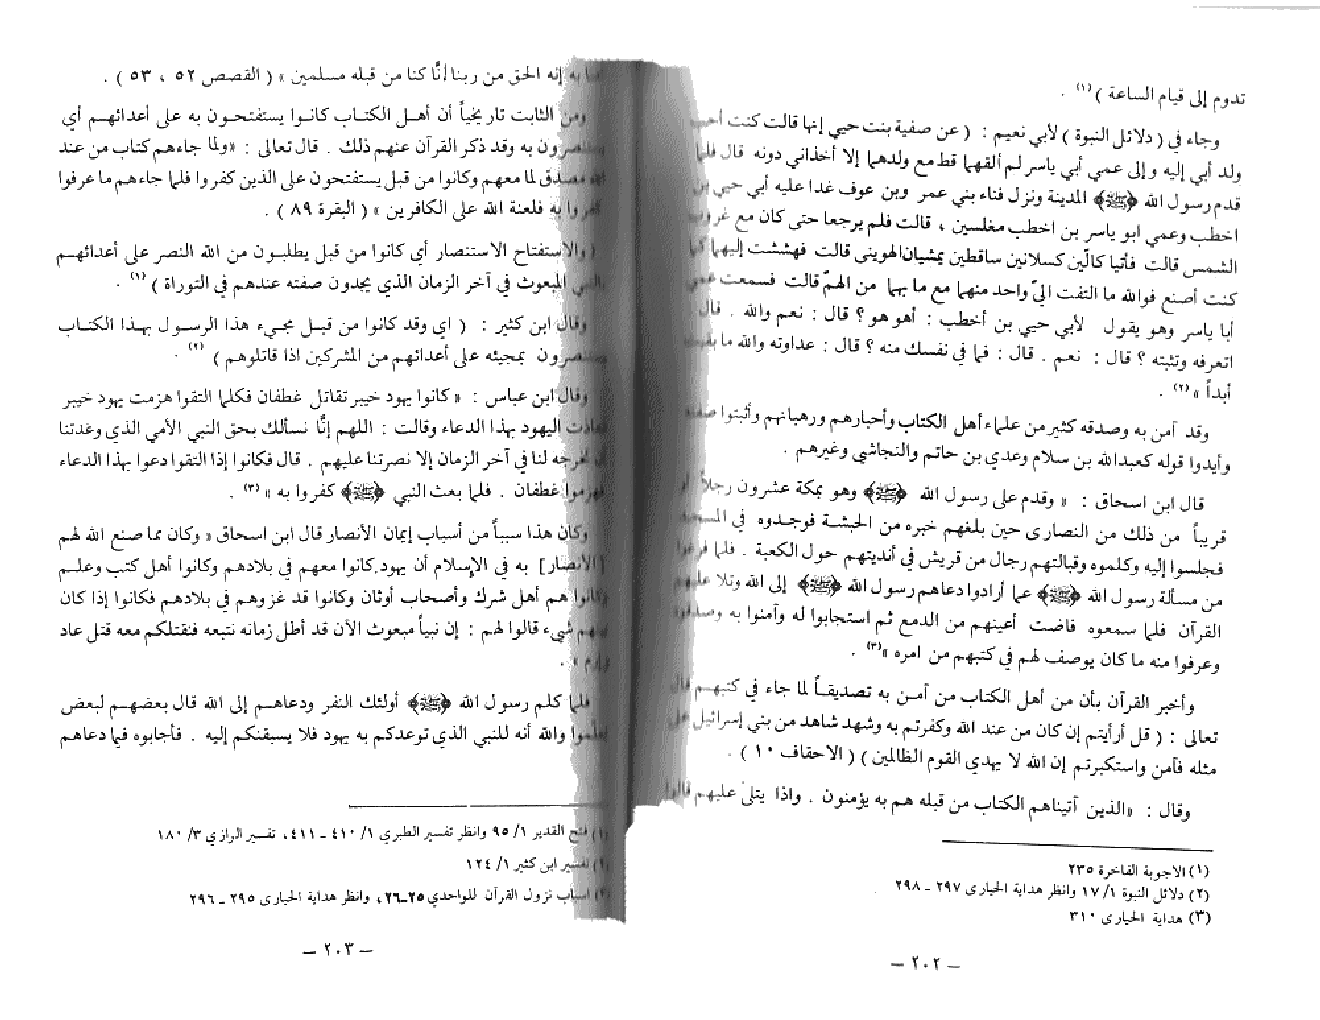 تدوم إلى قيام الساعة ) (١) .
وجاء في ( دلائل النبوة ) لأبي نعيم : ( عن صفية بنت حيي إنها قالت كنت أحب
ولد أبي إليه وإلى عمي أبي ياسر لم ألقهما قط مع ولدهما إلا أخذاني دونه قال فلما
قدم رسول الله ﷺ المدينة ونزل فناء بني عمر وبن عوف غدا عليه أبي حيي بن
اخطب وعمي ابو ياسر بن اخطب مغلسين ، قالت فلم يرجعا حتى كان مع غروب
الشمس قالت فأتيا كالّين كسلانين ساقطين يمشيان الهوينى قالت فهششت إليهما كما
كنت أصنع فوالله ما التفت اليّ واحد منهما مع ما بهما من الهمّ قالت فسمعت عمي
أبا ياسر وهو يقول لأبي حيي بن أخطب : أهو هو ؟ قال : نعم والله . قال
اتعرفه وتثبته ؟ قال : نعم . قال : فما في نفسك منه ؟ قال : عداوته والله ما بقيت
أبداً » (٢) .
وقد آمن به وصدقه كثير من علماء أهل الكتاب وأحبارهم ورهبانهم وأثبتوا صفته
وأيدوا قوله كعبدالله بن سلام وعدي بن حاتم والنجاشي وغيرهم .
قال ابن اسحاق : « وقدم على رسول الله ﷺ وهو بمكة عشرون رجلاً أو
قريباً من ذلك من النصارى حين بلغهم خبره من الحبشة فوجدوه في المسجد
فجلسوا إليه وكلموه وقبالتهم رجال من قريش في أنديتهم حول الكعبة . فلما فرغوا
من مسألة رسول الله ﷺ عما أرادوا دعاهم رسول الله ﷺ إلى الله وتلا عليهم
القرآن فلما سمعوه فاضت أعينهم من الدمع ثم استجابوا له وآمنوا به وصدقوه
وعرفوا منه ما كان يوصف لهم في كتبهم من امره » (٣) .
وأخبر القرآن بأن من أهل الكتاب من آمن به تصديقاً لما جاء في كتبهم قال
تعالى : ( قل أرأيتم إن كان من عند الله وكفرتم به وشهد شاهد من بني إسرائيل على
مثله فآمن واستكبرتم إن الله لا يهدي القوم الظالمين ) ( الاحقاف ١٠ ) .
وقال : «الذين آتيناهم الكتاب من قبله هم به يؤمنون . واذا يتلى عليهم قالوا
(١) الاجوبة الفاخرة ٢٣٥
(٢) دلائل النبوة ١/ ١٧ وانظر هداية الحيارى ٢٩٧ ـ ٢٩٨ .
(٣) هداية الحيارى ٣١٠
— ٢٠٢ —
آمنا به إنه الحق من ربنا إنَّا كنا من قبله مسلمين » ( القصص ٥٢ ، ٥٣ ) .
ومن الثابت تاريخياً أن أهل الكتاب كانوا يستفتحون به على أعدائهم أي
يستنصرون به وقد ذكر القرآن عنهم ذلك . قال تعالى : «ولما جاءهم كتاب من عند
الله مصدق لما معهم وكانوا من قبل يستفتحون على الذين كفروا فلما جاءهم ما عرفوا
كفروا به فلعنة الله على الكافرين » ( البقرة ٨٩ ) .
( والاستفتاح الاستنصار أي كانوا من قبل يطلبون من الله النصر على أعدائهم
بالنبي المبعوث في آخر الزمان الذي يجدون صفته عندهم في التوراة ) (١) .
وقال ابن كثير : ( اي وقد كانوا من قبل مجيء هذا الرسول بهذا الكتاب
يستنصرون بمجيئه على أعدائهم من المشركين اذا قاتلوهم ) (٢) .
وقال ابن عباس : « كانوا يهود خيبر تقاتل غطفان فكلما التقوا هزمت يهود خيبر
فعاذت اليهود بهذا الدعاء وقالت : اللهم إنَّا نسألك بحق النبي الأمي الذي وعدتنا
أن تخرجه لنا في آخر الزمان إلا نصرتنا عليهم . قال فكانوا إذا التقوا دعوا بهذا الدعاء
فهزموا غطفان . فلما بعث النبي ﷺ كفروا به » (٣) .
وكان هذا سبباً من أسباب إيمان الأنصار قال ابن اسحاق « وكان مما صنع الله لهم
[الأنصار] به في الإسلام أن يهود كانوا معهم في بلادهم وكانوا أهل كتب وعلم
وكانوا هم أهل شرك وأصحاب أوثان وكانوا قد غزوهم في بلادهم فكانوا إذا كان
بينهم شيء قالوا لهم : إن نبياً مبعوث الآن قد أطل زمانه نتبعه فنقتلكم معه قتل عاد
وإرم » .
فلما كلم رسول الله ﷺ أولئك النفر ودعاهم إلى الله قال بعضهم لبعض
تعلموا والله أنه للنبي الذي توعدكم به يهود فلا يسبقنكم إليه . فأجابوه فيما دعاهم
(١) فتح القدير ١/ ٩٥ وانظر تفسير الطبري ١/ ٤١٠ ـ ٤١١، تفسير الرازي ٣/ ١٨٠
(٢) تفسير ابن كثير ١/ ١٢٤
(٣) اسباب نزول القرآن للواحدي ٢٥ـ٢٦، وانظر هداية الحيارى ٢٩٥ ـ ٢٩٦
— ٢٠٣ —